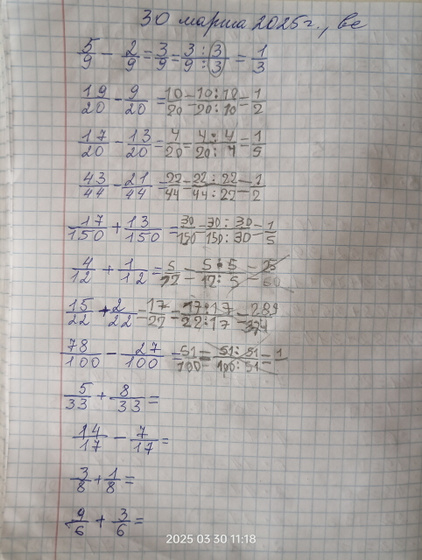 30 марта 2025г., вс
5/9 - 2/9 = 3/9 = 3:3/9:3 = 1/3
19/20 - 9/20 = 10/20 = 10:10/20:10 = 1/2
17/20 - 13/20 = 4/20 = 4:4/20:4 = 1/5
43/44 - 21/44 = 22/44 = 22:22/44:22 = 1/2
17/150 + 13/150 = 30/150 = 30:30/150:30 = 1/5
4/12 + 1/12 = 5/12 = 5:5/12:5 = 25/60
15/22 + 2/22 = 17/22 = 17:17/22:17 = 289/374
78/100 - 27/100 = 51/100 = 51:51/100:51 = 1
5/33 + 8/33 =
14/17 - 7/17 =
3/8 + 1/8 =
9/6 + 3/6 =
2025 03 30 11:18